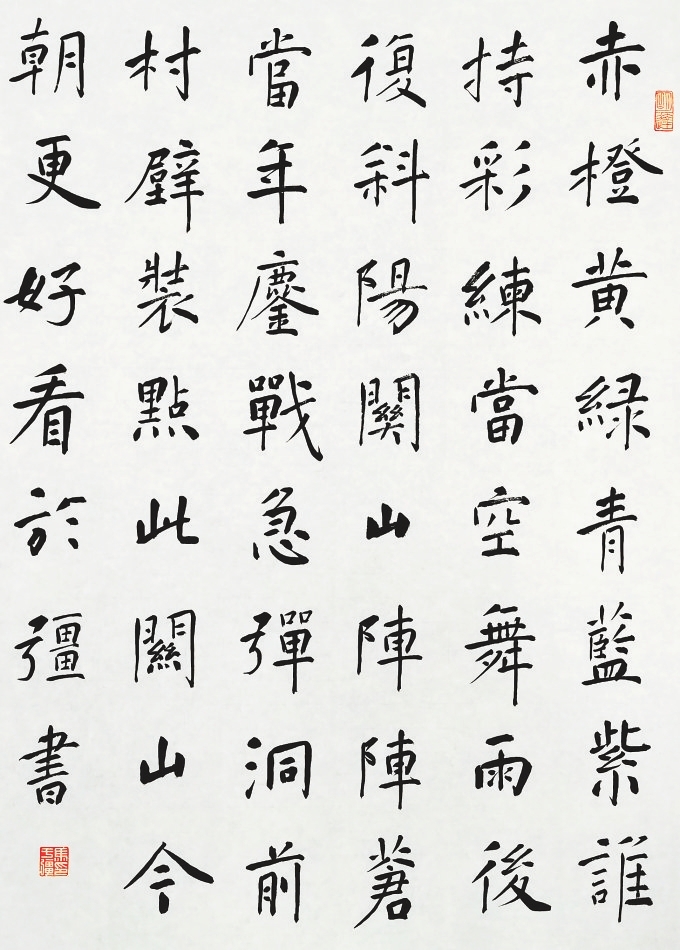 赤橙黄緑青藍紫誰
持彩練當空舞雨後
復斜陽關山陣陣蒼
當年鏖戰急彈洞前
村壁裝點此關山今
朝更好看於彊書